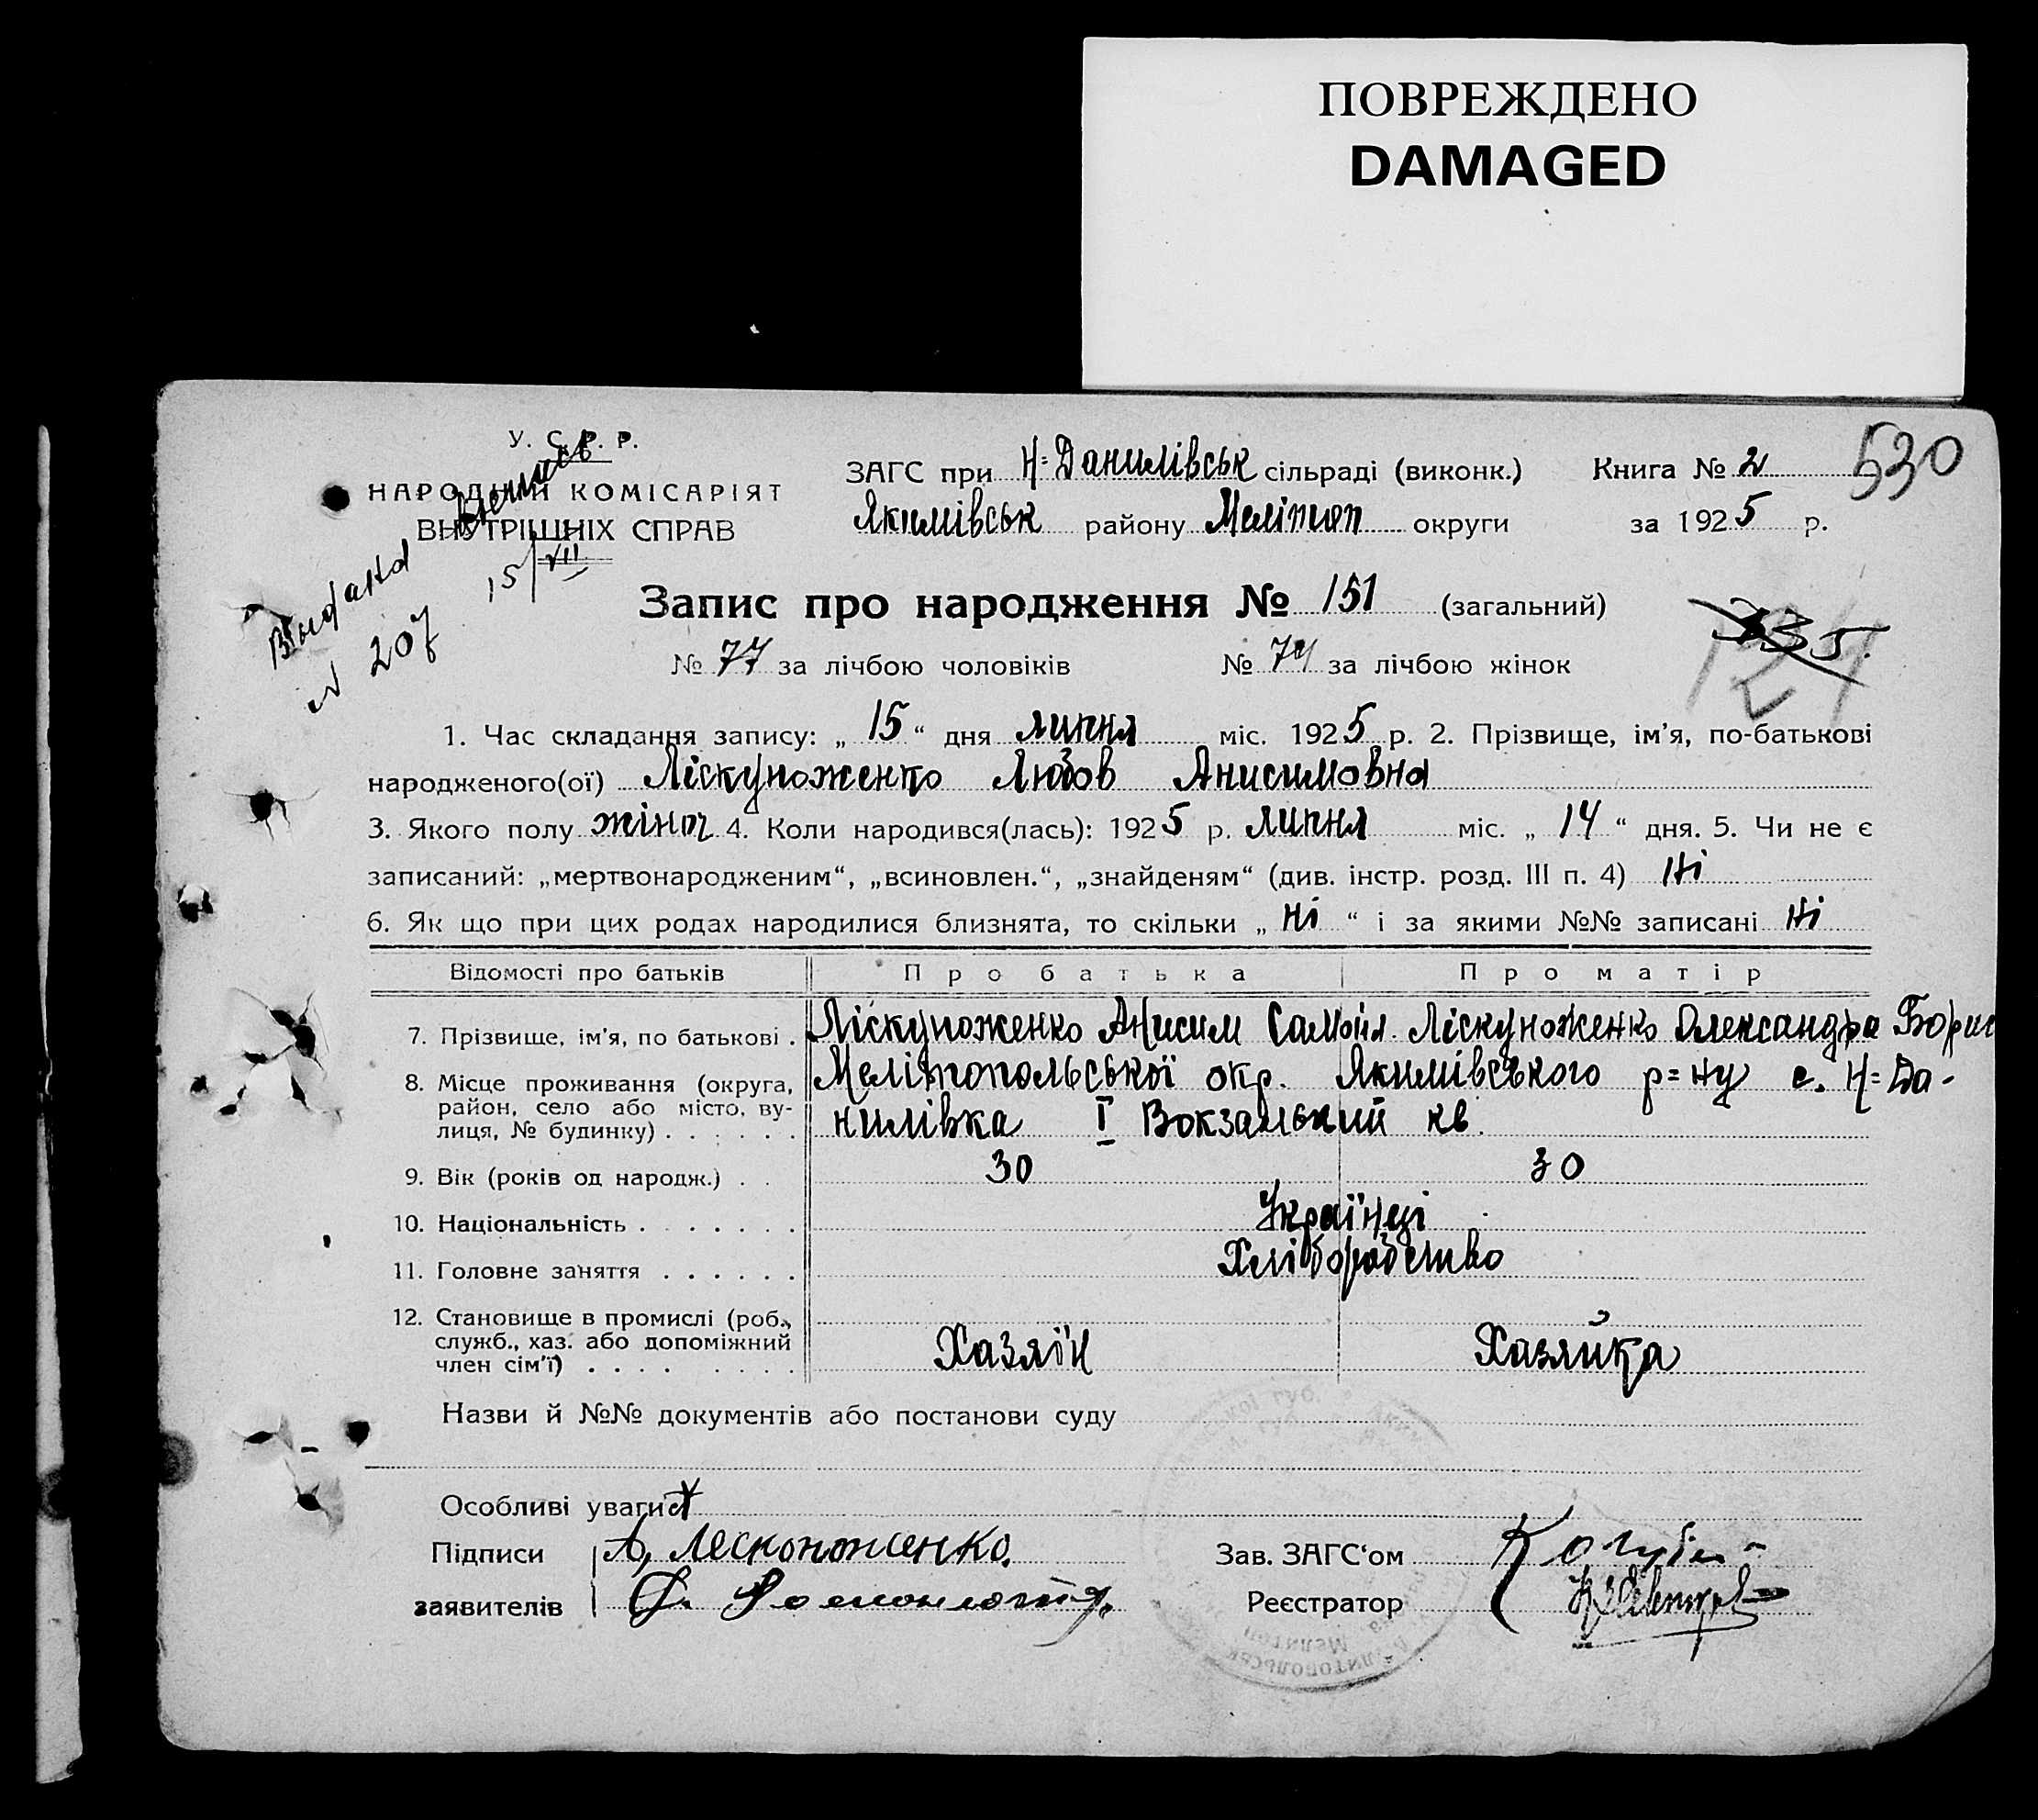 ПОВРЕЖДЕНО
DAMAGED
530
У. С. Р. Р.
НАРОДНИЙ КОМІСАРІЯТ
ВНУТРІШНІХ СПРАВ
ЗАГС при Н=Данилівськ сільраді (виконк.) Книга № 2
Якимівськ району Мелітоп округи за 1925 р.
Видана
15/VII
№ 207
Запис про народження № 151 (загальний)
335.
121
№ 77 за лічбою чоловіків № 74 за лічбою жінок
1. Час складання запису: „ 15 “ дня липня міс. 1925 р. 2. Прізвище, ім’я, по-батькові
народженого(ої) Ліскуноженко Любов Анисимовна
3. Якого полу жіноч 4. Коли народився(лась): 1925 р. липня міс. „ 14 “ дня. 5. Чи не є
записаний: „мертвонародженим“, „всиновлен.“, „знайденям“ (див. інстр. розд. III п. 4) Ні
6. Як що при цих родах народилися близнята, то скільки „ Ні “ і за якими №№ записані Ні
Відомості про батьків Про батька Про матір
7. Прізвище, ім’я, по батькові . Ліскуноженко Анисим Самойл. Ліскуноженко Олександра Борис
8. Місце проживання (округа, район, село або місто, ву-лиця, № будинку) . . . . . . Мелітопольської окр. Якимівського р=ну с. Н=Да-
нилівка I Вокзальний кв.
9. Вік (років од народж.) . . 30 30
10. Національність . . . . . . . Українці
11. Головне заняття . . . . . . Хліборобство
12. Становище в промислі (роб., служб., хаз. або допоміжний член сім’ї) . . . . . . . . Хазяїн Хазяйка
Назви й №№ документів або постанови суду
Особливі уваги
Підписи А, Лесконоженко.
заявителів
Зав. ЗАГС‘ом
Реєстратор